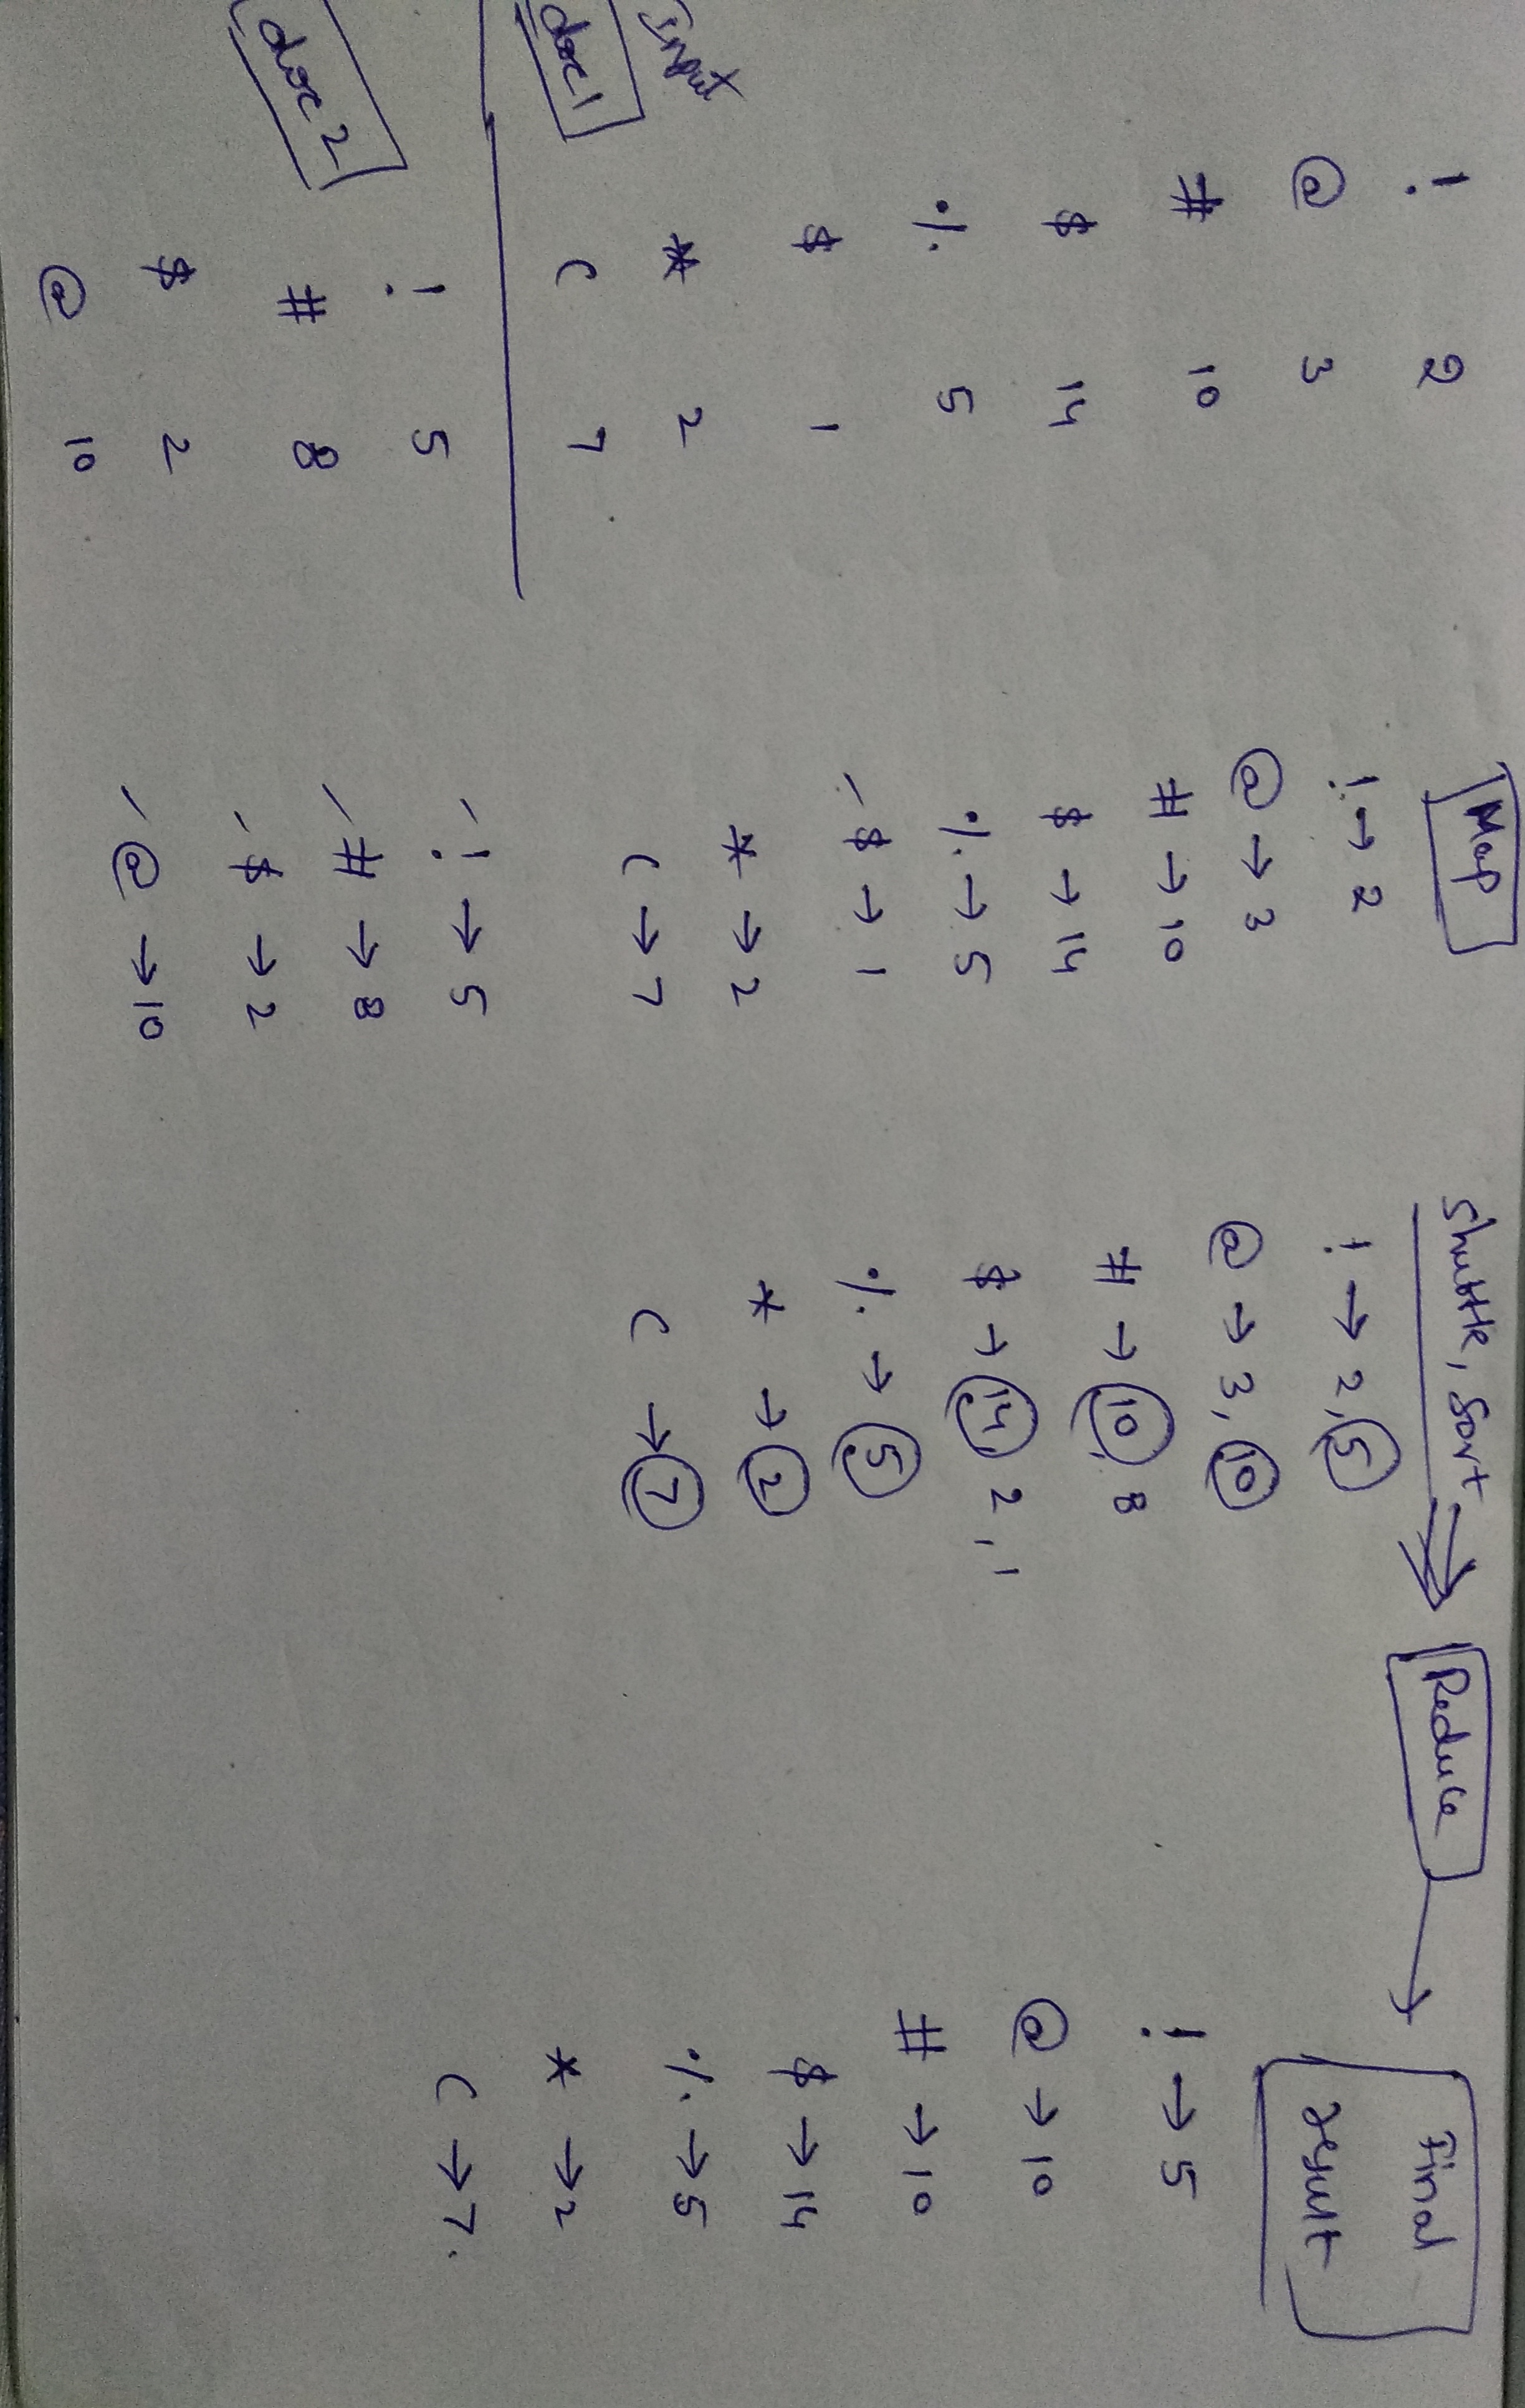 Input
doc1
! 2
@ 3
# 10
$ 14
% 5
$ 1
* 2
( 7
doc 2
! 5
# 8
$ 2
@ 10
Map
! → 2
@ → 3
# → 10
$ → 14
% → 5
- $ → 1
* → 2
( → 7
- ! → 5
- # → 8
- $ → 2
- @ → 10
Shuttle, Sort
! → 2, 5
@ → 3, 10
# → 10, 8
$ → 14, 2, 1
% → 5
* → 2
( → 7
Reduce
Final
result
! → 5
@ → 10
# → 10
$ → 14
% → 5
* → 2
( → 7.